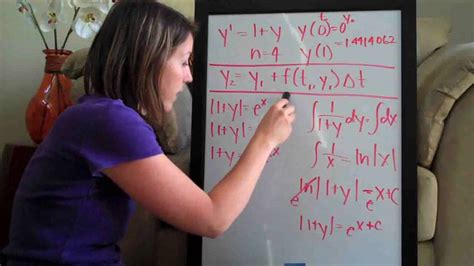 y' = 1+y   y(0)=0
t   y₀
n=4   y(1)   1.4414062
y₂ = y₁ + f(t₁, y₁) Δt
|1+y| = eˣ
|1+y| =
1+y
∫ 1/(1+y) dy = ∫ dx
∫ 1/x = ln|x|
e ln|1+y| = e x+c
|1+y| = eˣ⁺ᶜ